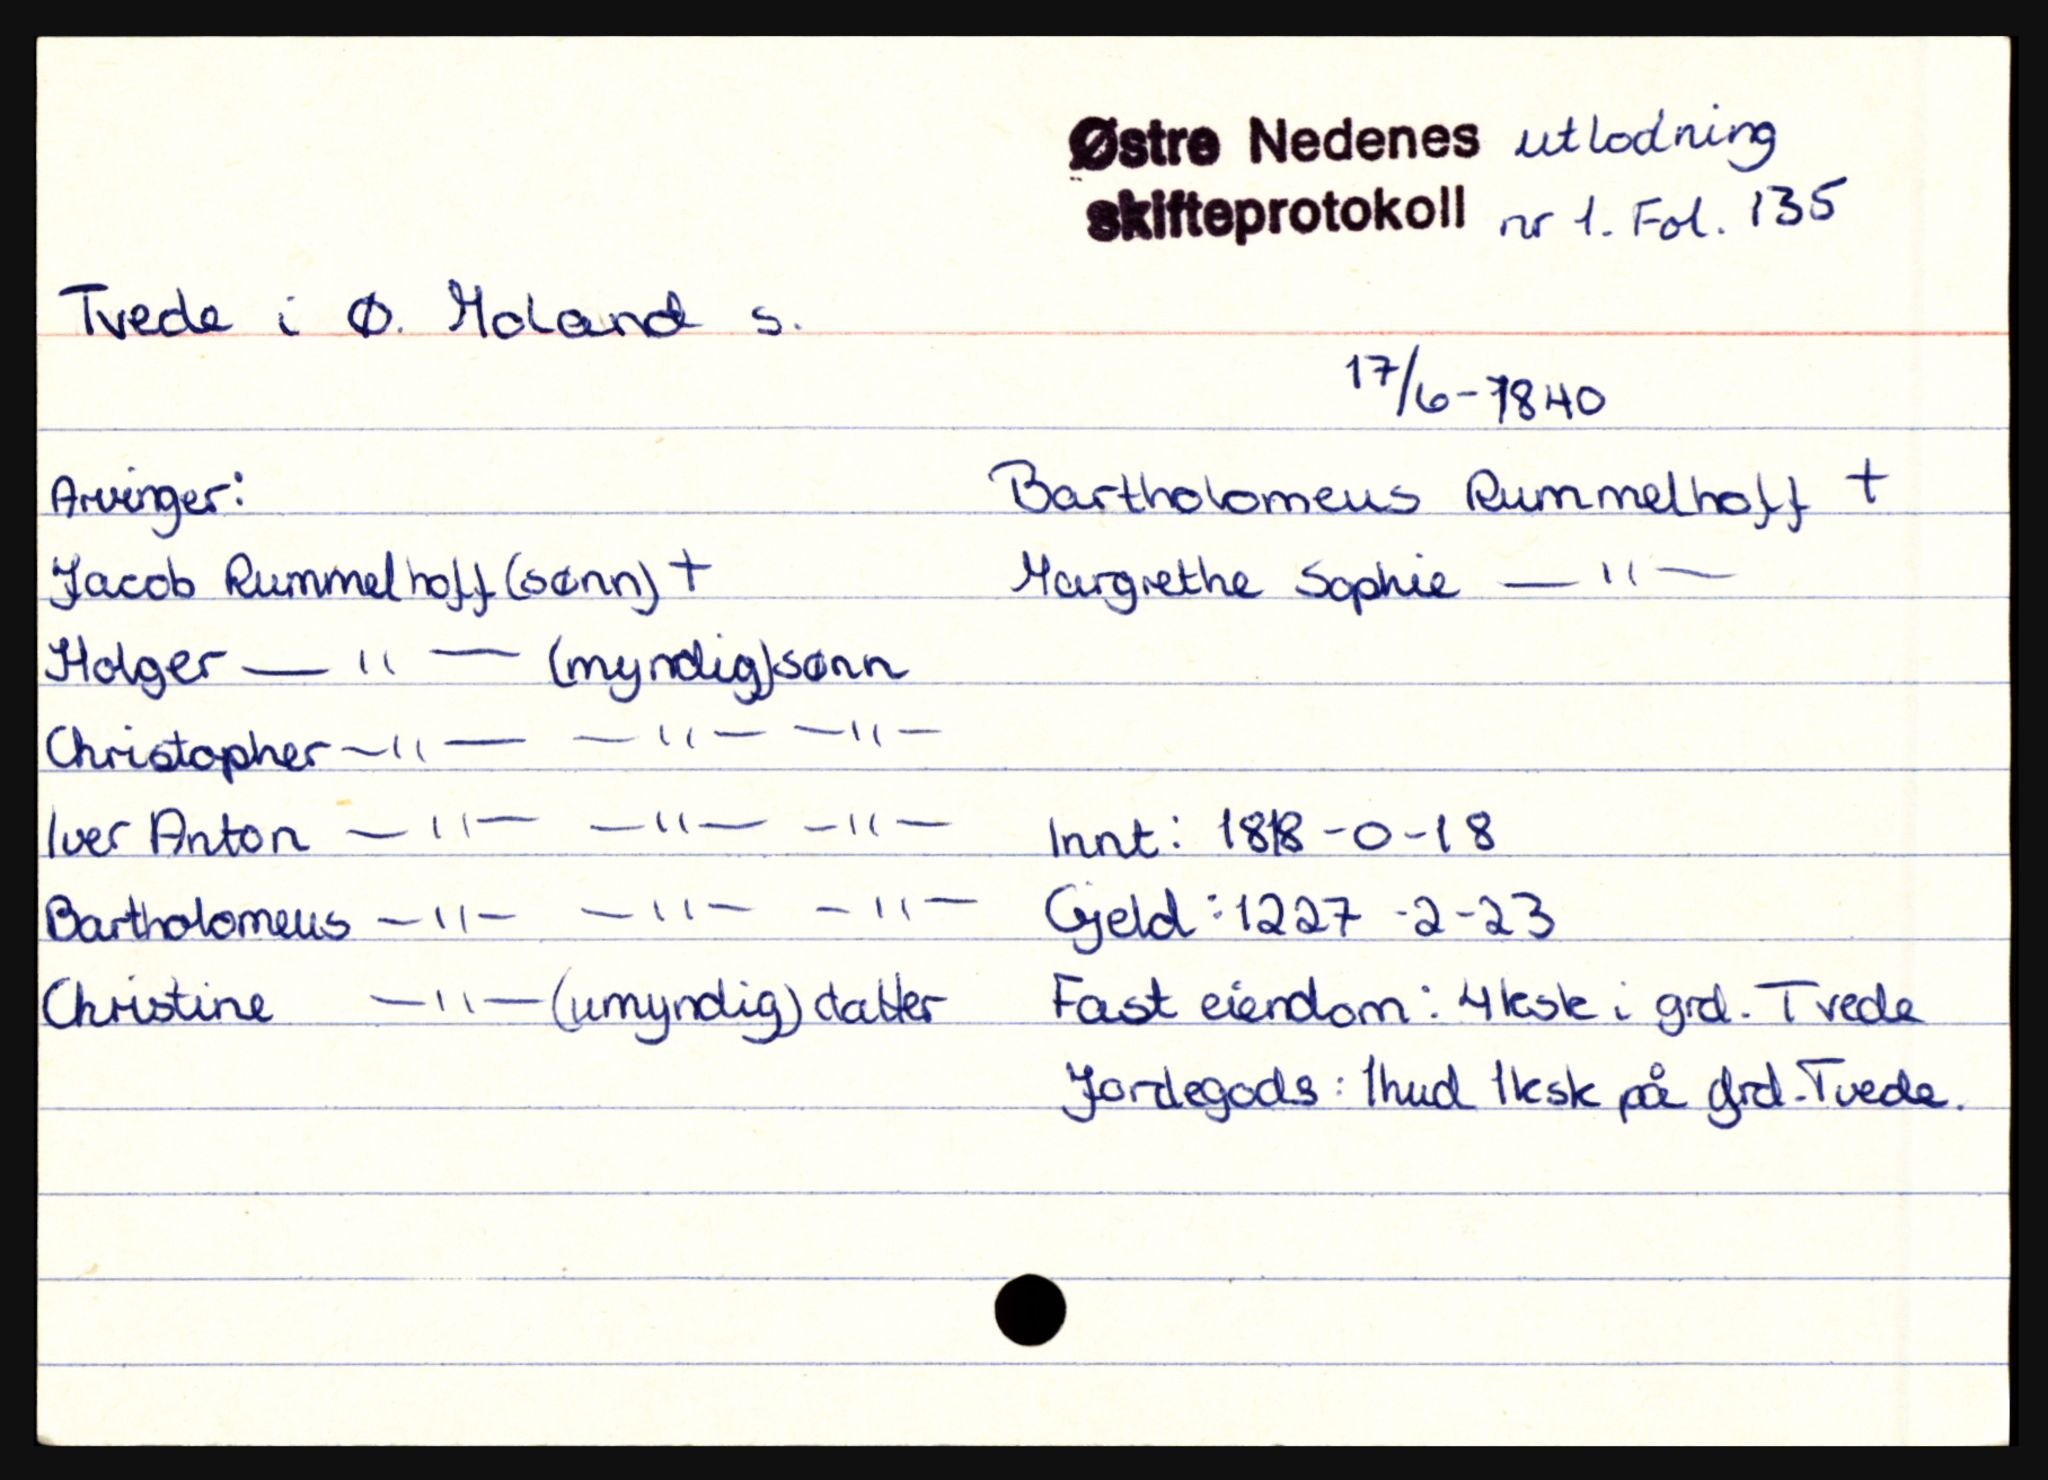 Østre Nedenes utlodning
skifteprotokoll nr 1. Fol. 135
Tvede i Ø. Moland s.
17/6-1840
Arvinger:
Jacob Rummelhoff (sønn) +
Holger — " — (myndig) sønn
Christopher — " — — " — — " —
Iver Anton — " — — " — — " —
Bartholomeus — " — — " — — " —
Christine — " — (umyndig) datter
Bartholomeus Rummelhoff +
Margrethe Sophie — " —
Innt: 1818-0-18
Gjeld: 1227-2-23
Fast eiendom: 4ksk i grd. Tvede
Jordegods: 1hud 1ksk på grd. Tvede.